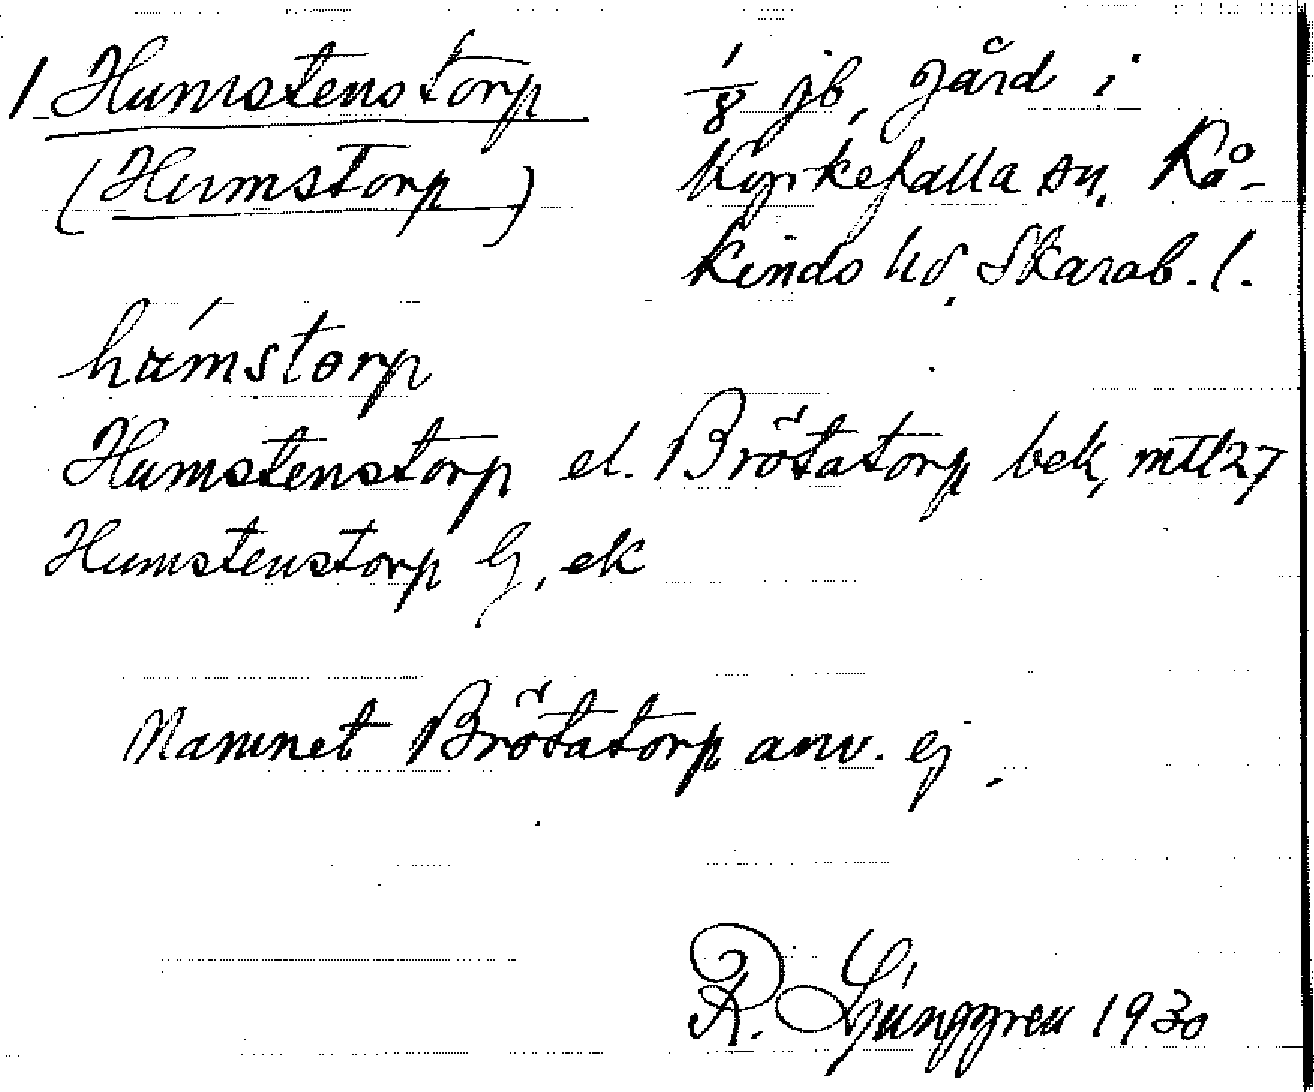 1 Humstenstorp
(Humstorp)
1/8 jb, gård i
Kyrkefalla sn, Kå-
kinds hd, Skarab. l.
hùmstorp
Humstenstorp el. Brötatorp bek, mtl 27
Humstenstorp G, ek
Namnet Brötatorp anv. ej.
R. Ljunggren 1930